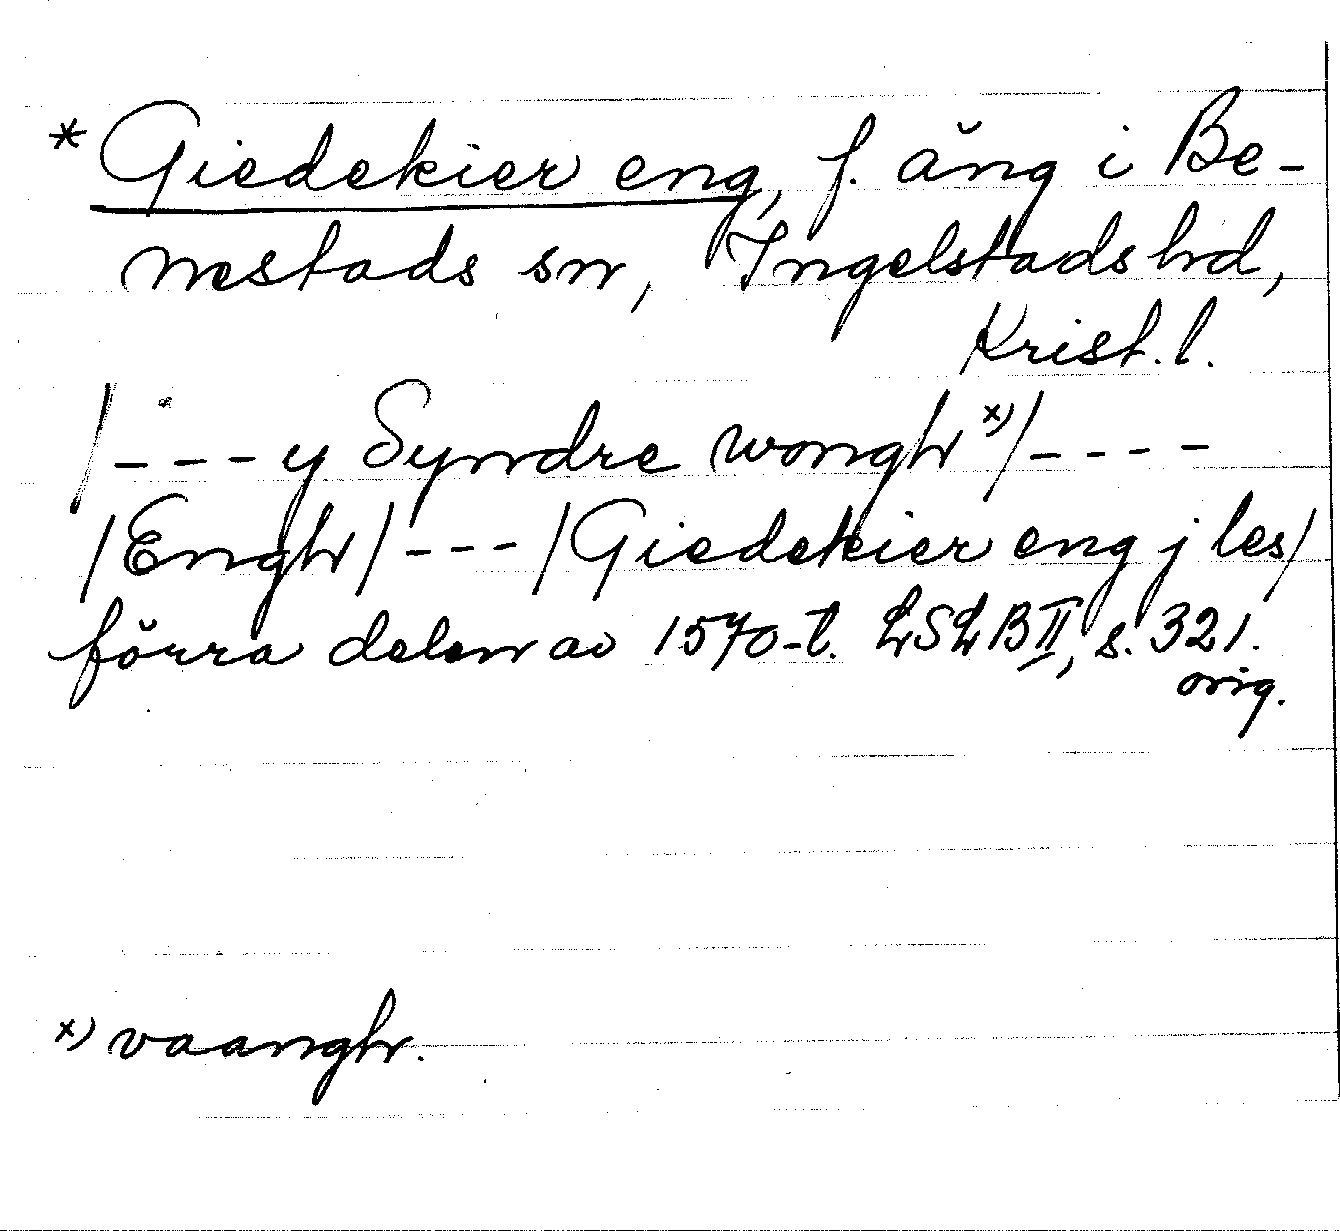 * Giedekier eng, f. äng i Be-
nestads sn, Ingelstads hd,
Krist. l.
/---y Syndre wongh x)/----
/Engh/---/Giedekier eng j les/
förra delen av 1570-t. LSLB II, s. 321.
orig.
x) vaangh.